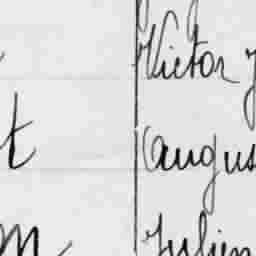 Victor J
t Augus
m Julien